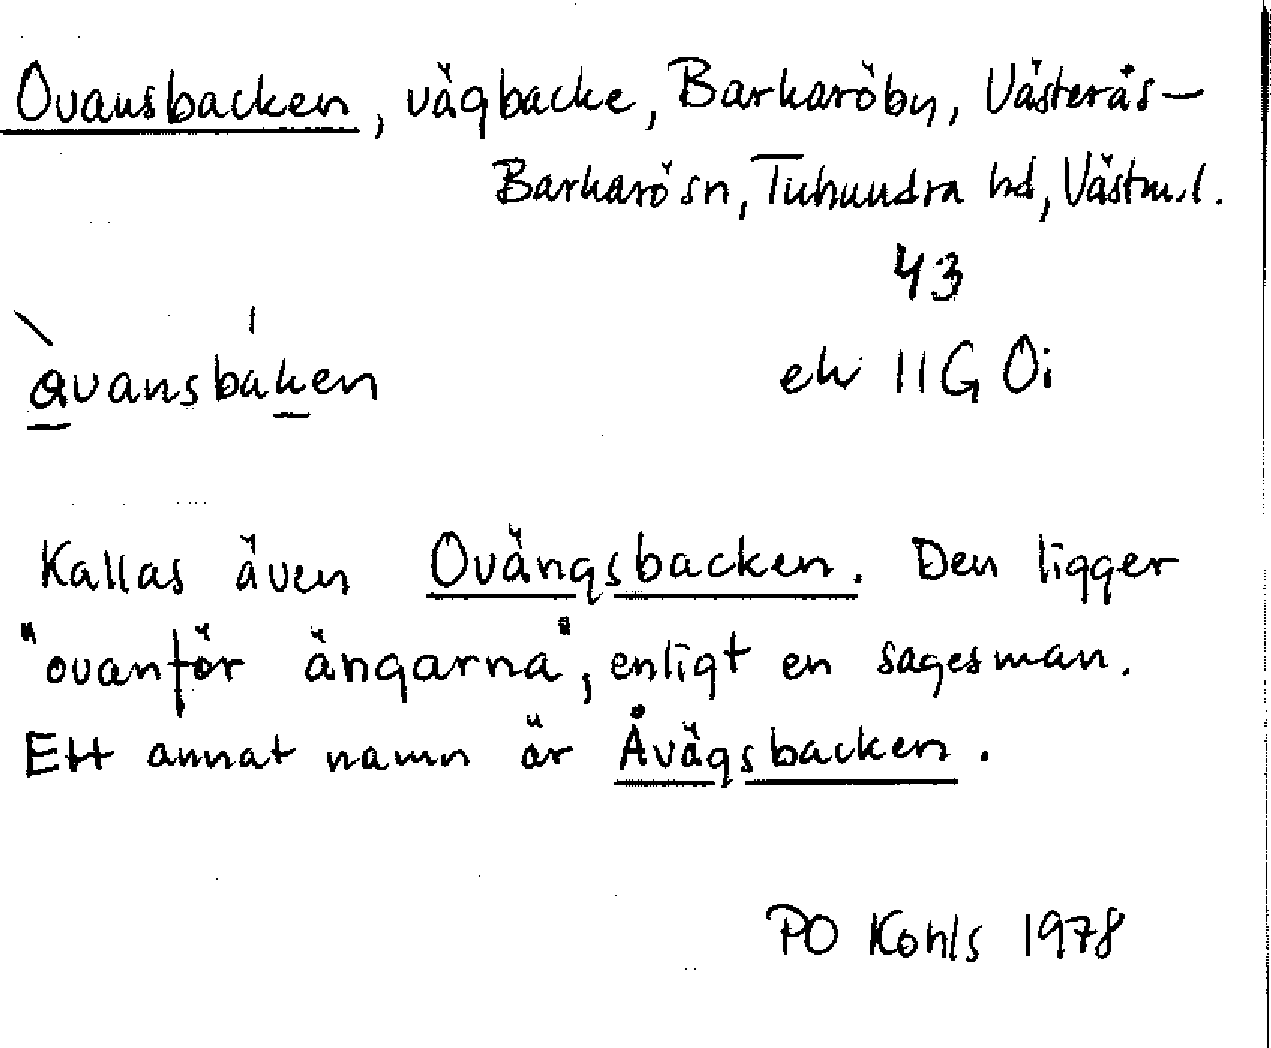 Ovansbacken, vägbacke, Barkaröby, Västerås-
Barkarö sn, Tuhundra hd, Västm.l.
43
ek 11G 0i
ovansbaken
Kallas även Ovängsbacken. Den ligger
"ovanför ängarna", enligt en sagesman.
Ett annat namn är Åvägsbacken.
PO Kohls 1978